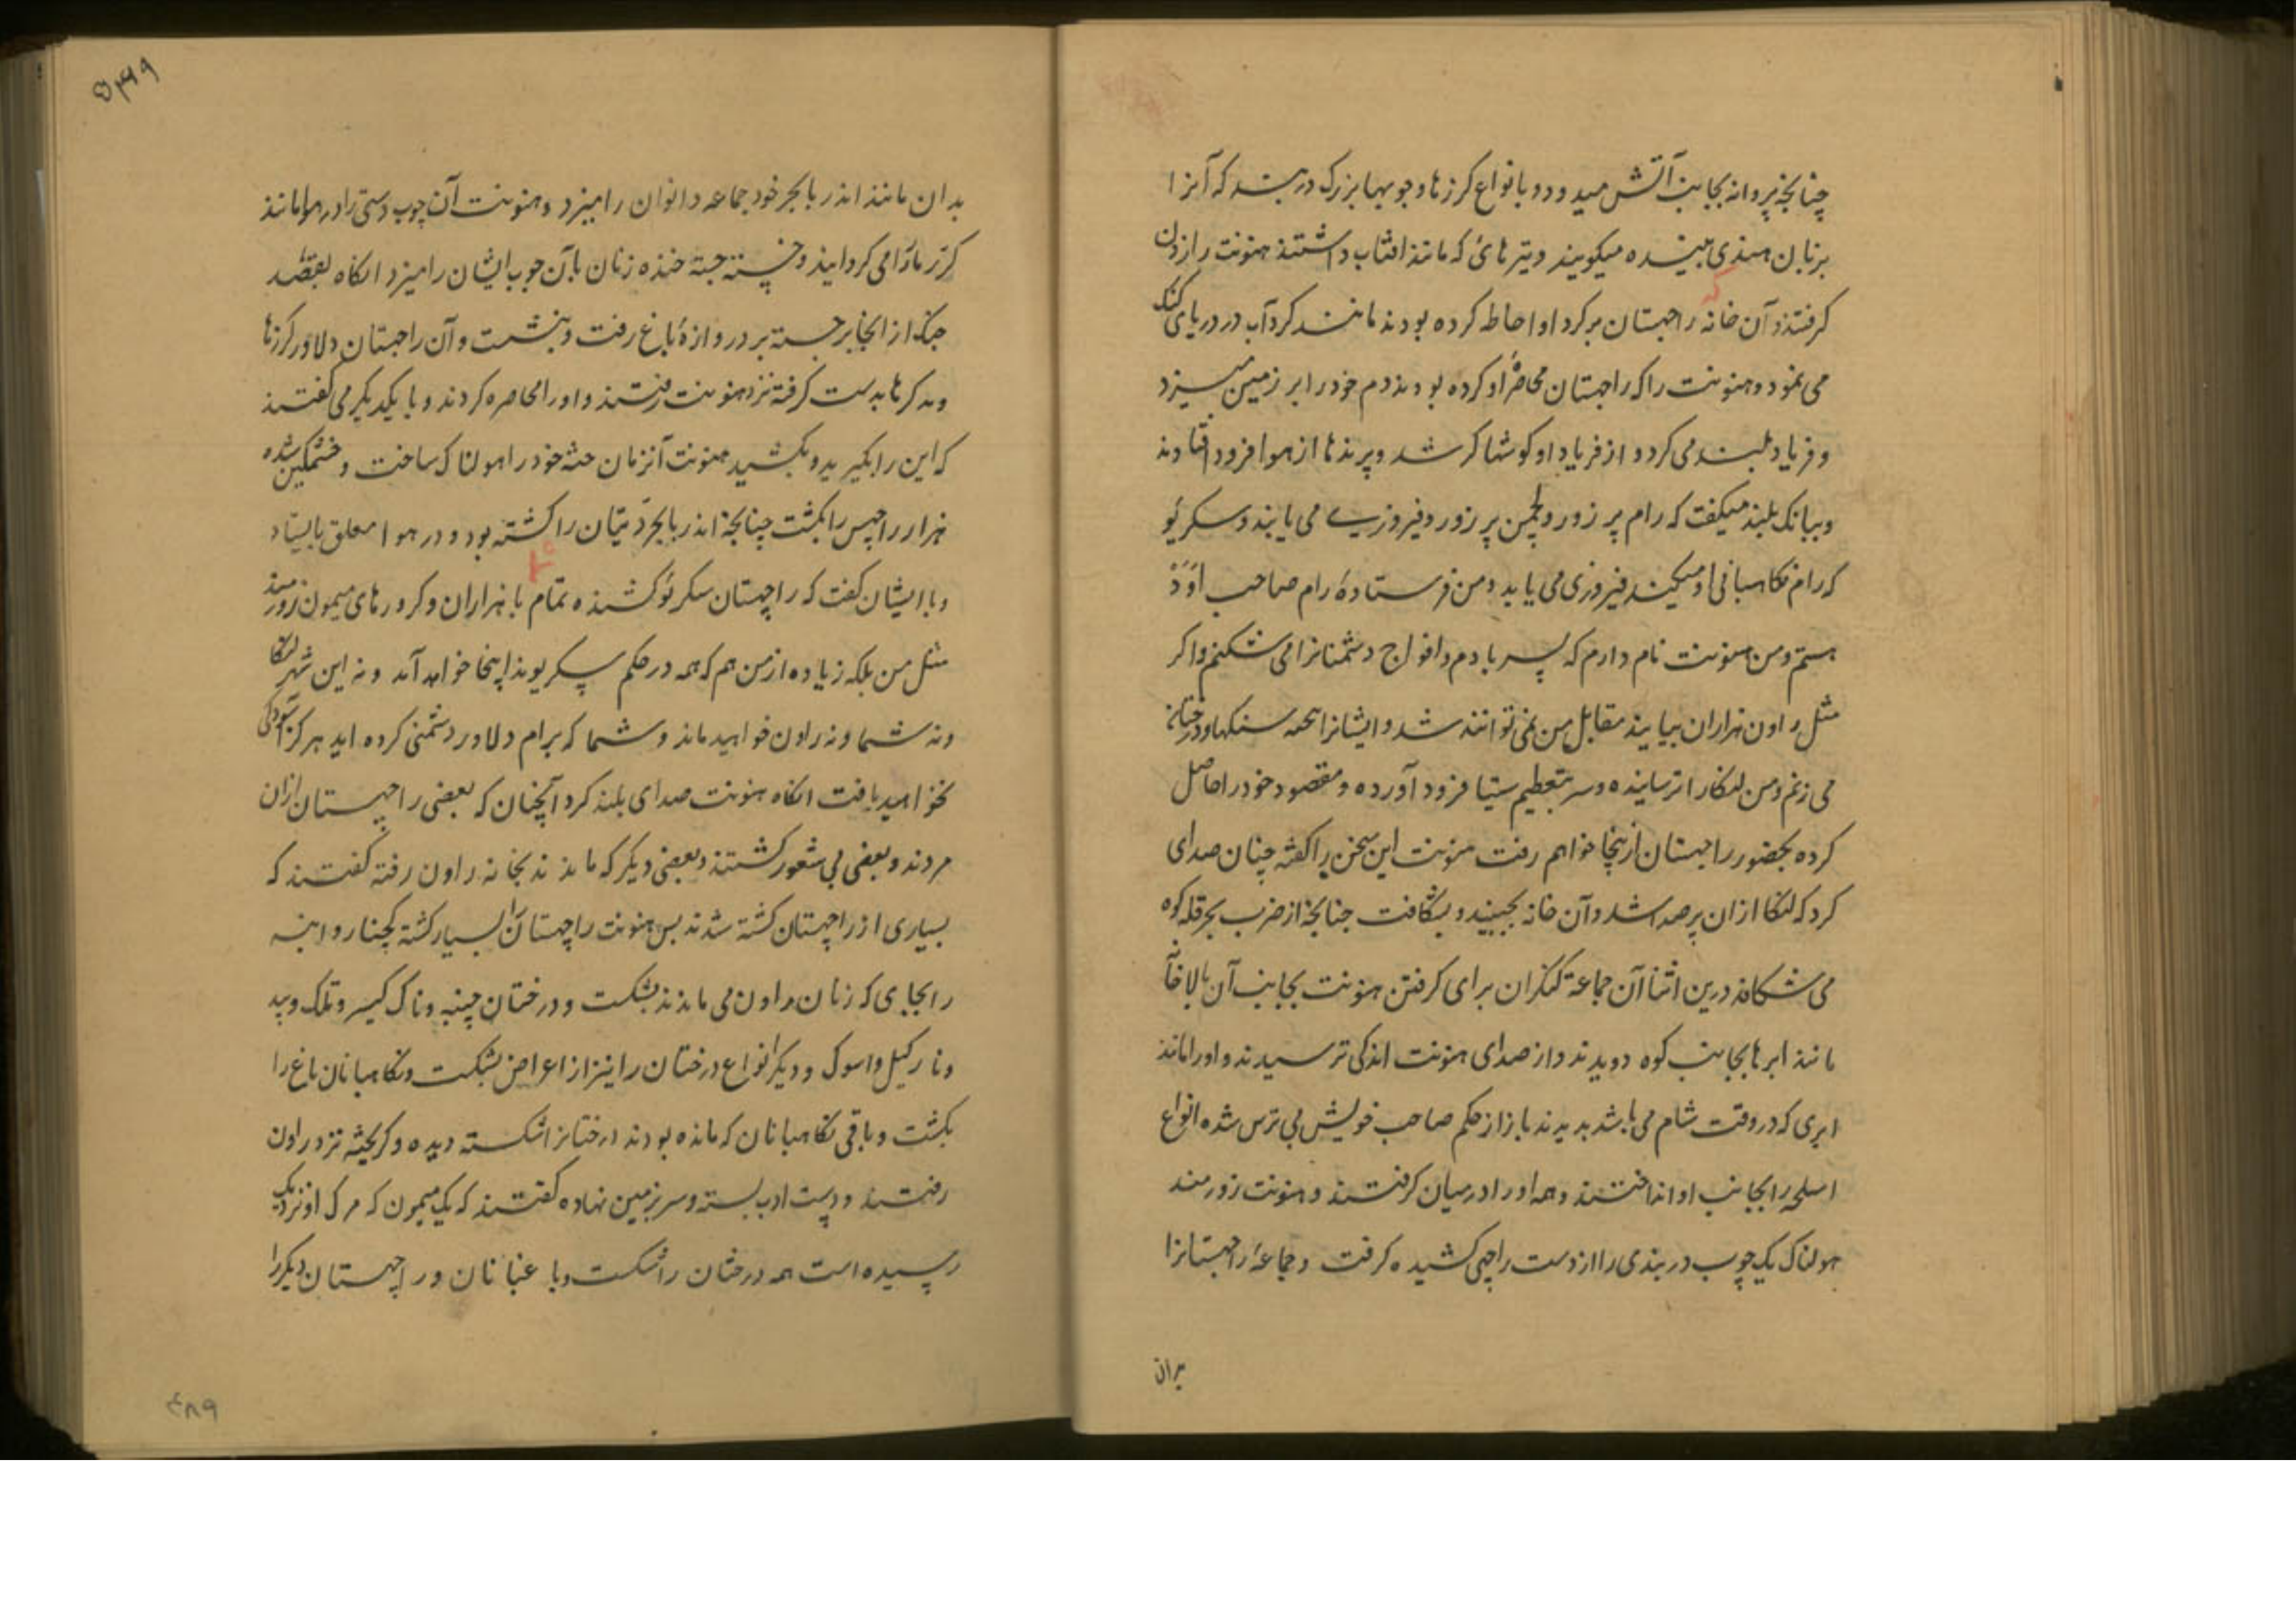 چنانچه پروانه بجانب آتش میدود و با نواع کرزها و چوبها بزرک در بسته که آنرا
بزبان هندی میکویند و تیرهائ که مانند افتاب داشتند هنونت را زدن
کرفتند و آن خانه راچهستان بر کرد او احاطه کرده بودند مانند کردآب در دریای کنک
می نمود و هنونت را که راچهستان محاصرهٔ او کرده بودند دم خود را بر زمین میزد
و فریاد بلند می کرد و از فریاد او کوشها کر شد و پرندها از هوا فرود افتادند
و ببانک بلند میکفت که رام پر زور و لچمن پر زور و فیروزی می یابند و سکریو
که رام نکاهبانی او میکند فیروزی می یابد و من فرستادهٔ رام صاحب اوده
هستم و من هنونت نام دارم که پسر بادم و افواج دشمنانرا می شکنم و اکر
مثل راون هزاران بیایند مقابل من نمی توانند شد و ایشانرا همه سنکها و درختان
می زنم و من لنکا را ترسانیده و سر بتعظیم سیتا فرود آورده و مقصود خود را حاصل
کرده بحضور راچهستان ازینجا خواهم رفت هنونت این سخن را کفته چنان صدای
کرد که لنکا ازان پر صدا شد و آن خانه بجنبید و بشکافت چنانچه از ضرب بجر قله کوه
می شکافد درین اثنا آن جماعهٔ کنکران برای کرفتن هنونت بجانب آن بالاخانه
مانند ابرها بجانب کوه دویدند و از صدای هنونت اندکی ترسیدند و او را مانند
ابری که در وقت شام می باشد بدیدند باز از حکم صاحب خویش بی ترس شده انواع
اسلحه را بجانب او انداختند و همه او را در میان کرفتند و هنونت زورمند
هولناک یک چوب در بندی را از دست راچهی کشیده کرفت و جماعهٔ راچهستانرا
بدان
۵۳۹
بدان مانند اندر با بجر خود جماعه دانوان را میزد و هنونت آن چوب دستی را در هوا مانند
کرر مار را می کردانید و جسته جسته خنده زنان بآن چوب ایشان را میزد انکاه بقصد
جنک از انجا برجسته بر دروازهٔ باغ رفت و بنشست و آن راچهستان دلاور کرزها
و مدکرها بدست کرفته نزد هنونت رفتند و او را محاصره کردند و با یکدیکر می کفتند
که این را بکیرید و بکشید هنونت آنزمان جثه خود را هولناک ساخت و خشمکین شده
هزار راچهس را بکشت چنانچه اندر با بجر دیتان را کشته بود و در هوا معلق بایستاد
و با ایشان کفت که راچهستان سکریو کشنده تمام با هزاران و کرورهای میمون زورمند
مثل من بلکه زیاده از من هم که همه در حکم سکریوند اینجا خواهد آمد و نه این شهر لنکا
و نه شما و نه راون خواهید ماند و شما که برام دلاور دشمنی کرده اید هرکز آسودکی
نخواهید یافت انکاه هنونت صدای بلند کرد آنچنان که بعضی راچهستان ازان
مردند و بعضی بی شعور کشتند و بعضی دیکر که ماندند بخانه راون رفته کفتند که
بسیاری از راچهستان کشته شدند پس هنونت راچهستان را بسیار کشته کچنار و انبه
را بجایی که زنان راون می ماندند بشکست و درختان چنپه و ناک کیسر و تلک و بید
و نارکیل و اسوک و دیکر انواع درختان را نیز از اعراض بشکست و نکاهبانان باغ را
بکشت و باقی نکاهبانان که مانده بودند درختانرا شکسته دیده و کریخته نزد راون
رفتند و دست ادب بسته و سر بزمین نهاده کفتند که یک میمون که مرک او نزدیک
رسیده است همه درختان را شکست و باغبانان و راچهستان دیکر را
۴۸۹